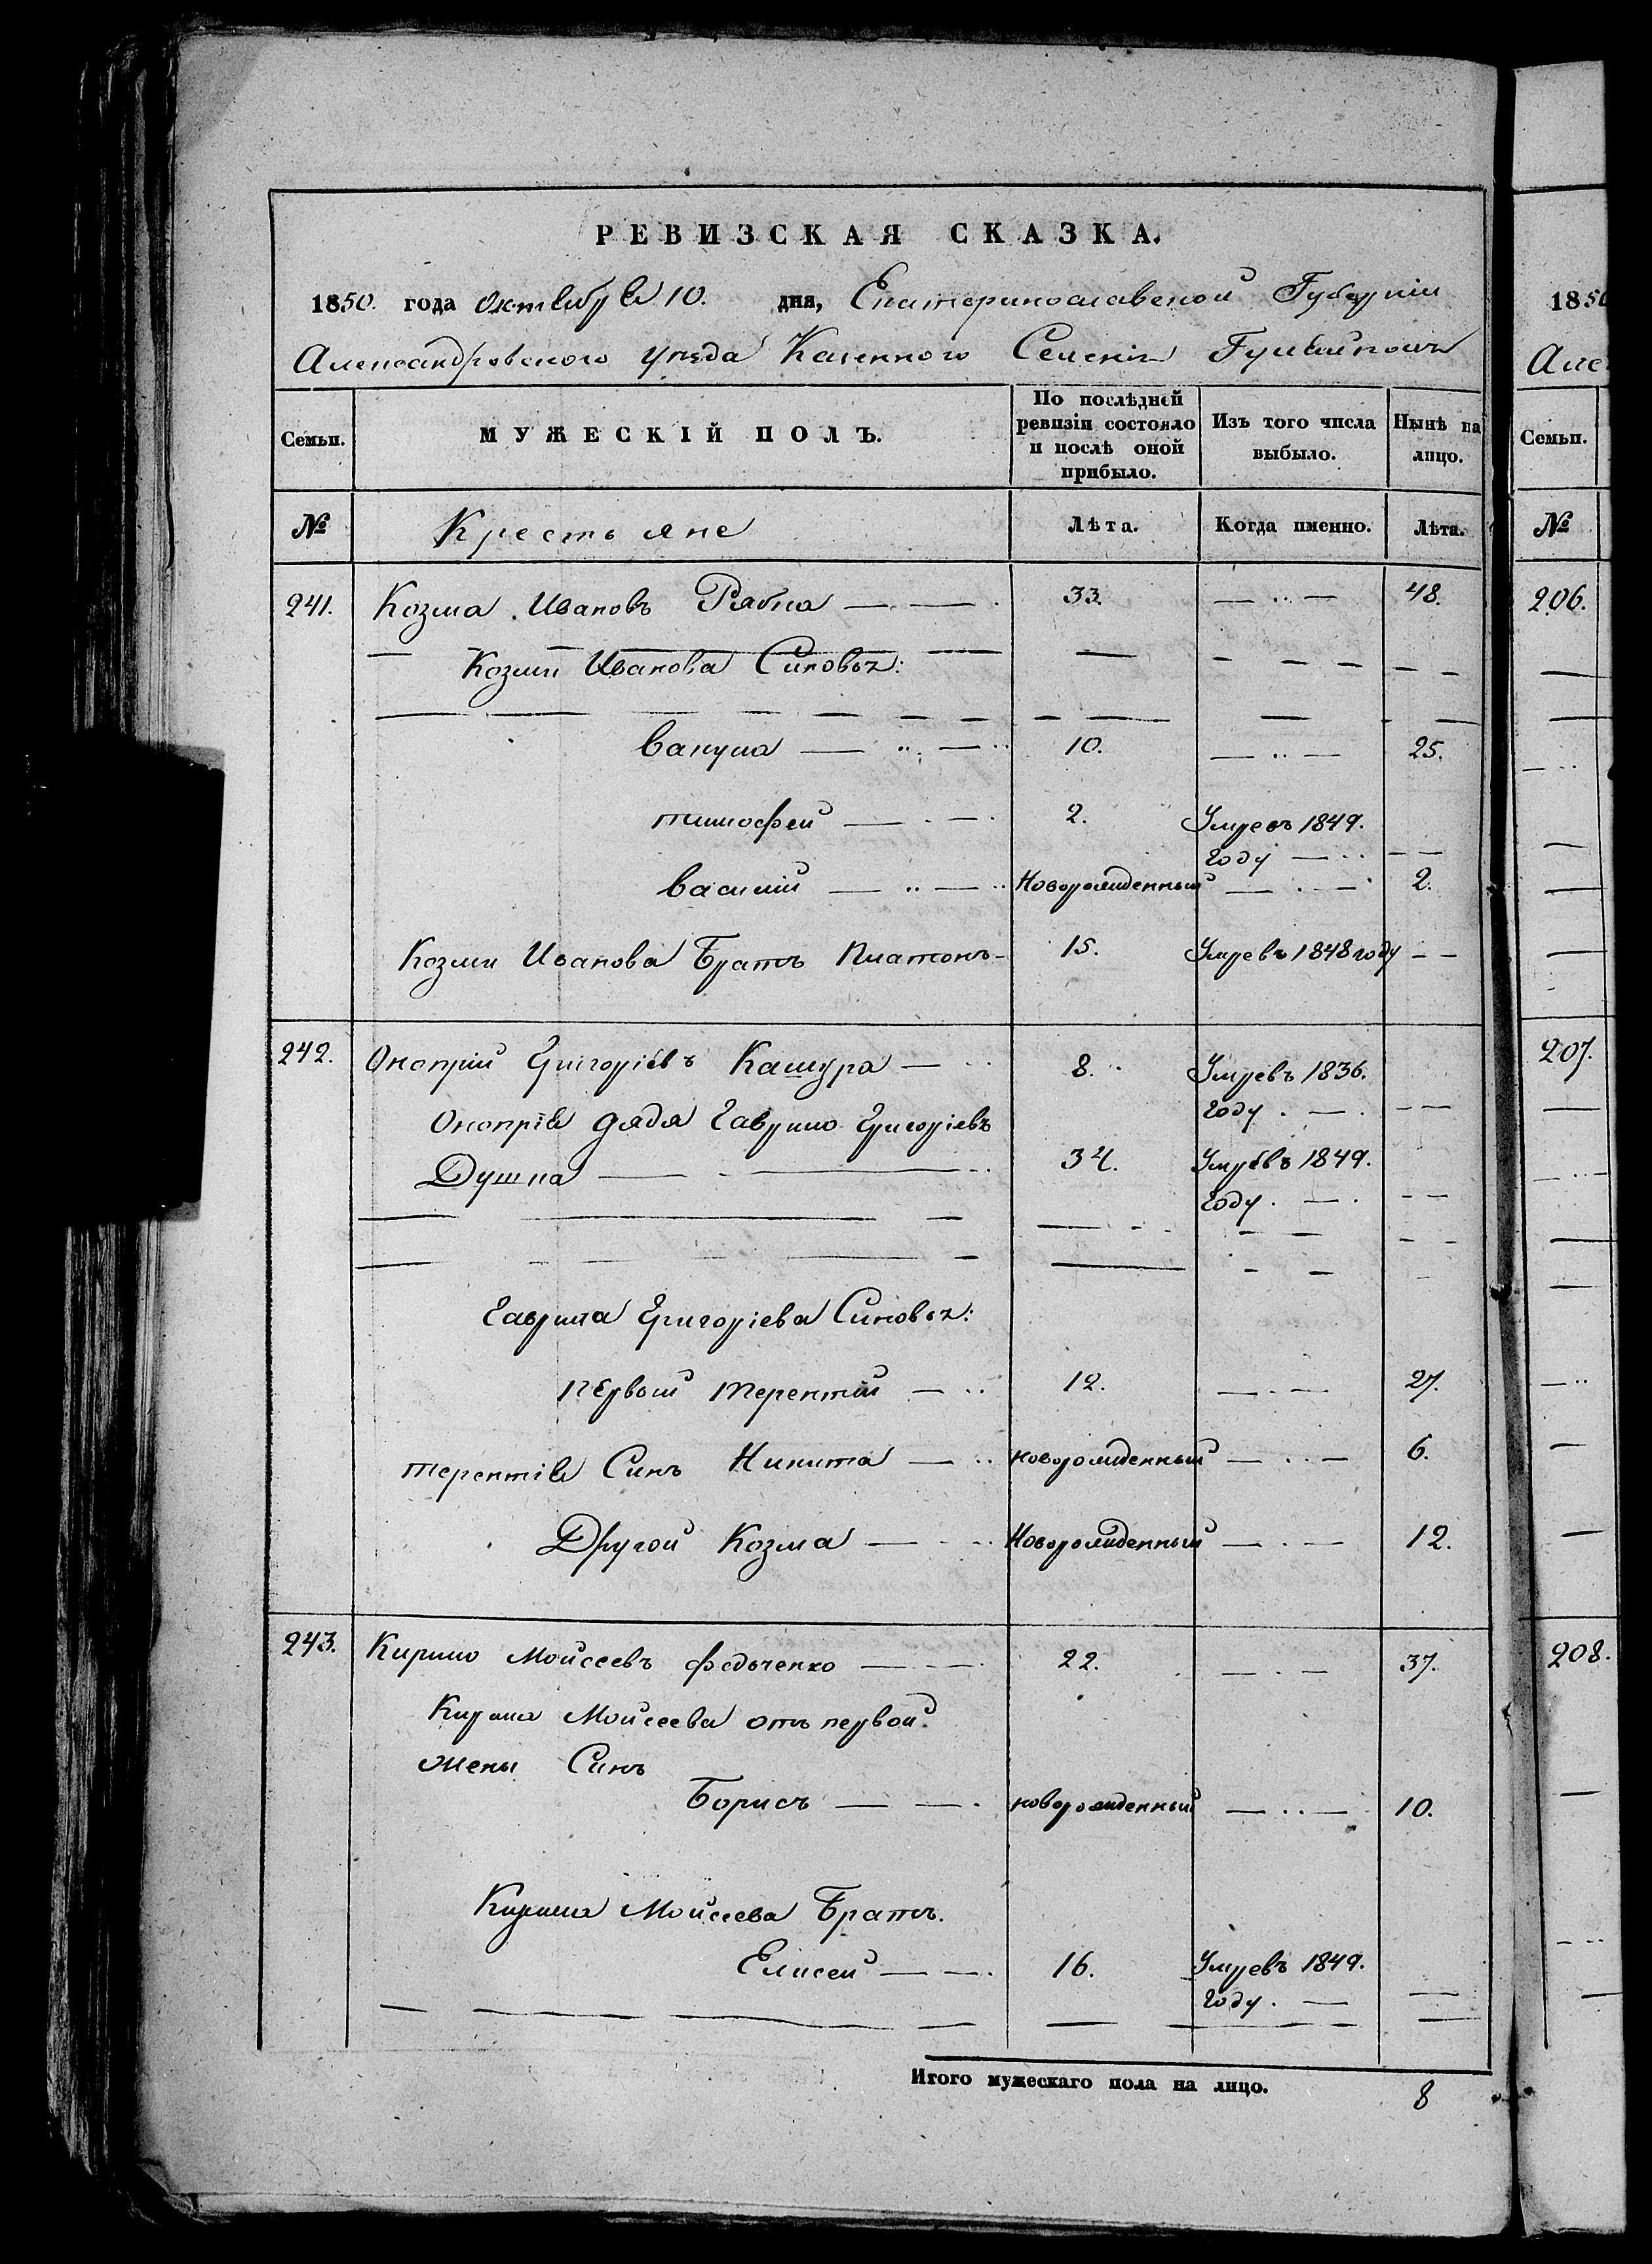 РЕВИЗСКАЯ СКАЗКА.
1850. года октября 10. дня, Екатеринославской Губерніи
Александровского уѣзда Казенного Селенія Гуляйполя
Семьи. МУЖЕСКІЙ ПОЛЪ. По послѣдней ревизіи состояло и послѣ оной прибыло. Изъ того числа выбыло. Нынѣ на лицо.
№ Крестьяне Лѣта. Когда именно. Лѣта.
241. Козма Ивановъ Рябка 33. 48.
Козми Иванова Синовья:
Вакума 10. 25.
тимофей 2. Умревъ 1849.
году
василий Новорожденный 2.
Козми Иванова Братъ Платонъ 15. Умревъ 1848 году
242. Оноприй Григоріевъ Кашура 8. Умревъ 1836.
году
Оноприя дядя Гаврило Григоріевъ
Душка 34. Умревъ 1849.
году
Гаврила Григоріева Синовья:
Первый терентий 12. 27.
терентія Синъ Никита новорожденный 6.
Другой Козма Новорожденный 12.
243. Кирило Мойсеевъ федьченко 22. 37.
Кирила Мойсеева отъ первой
жены Синъ
Борисъ новорожденный 10.
Кирила Мойсеева Братъ.
Елисей 16. Умревъ 1849.
году
Итого мужескаго пола на лицо. 8
1850
Але
Семьи.
№
206.
207.
208.